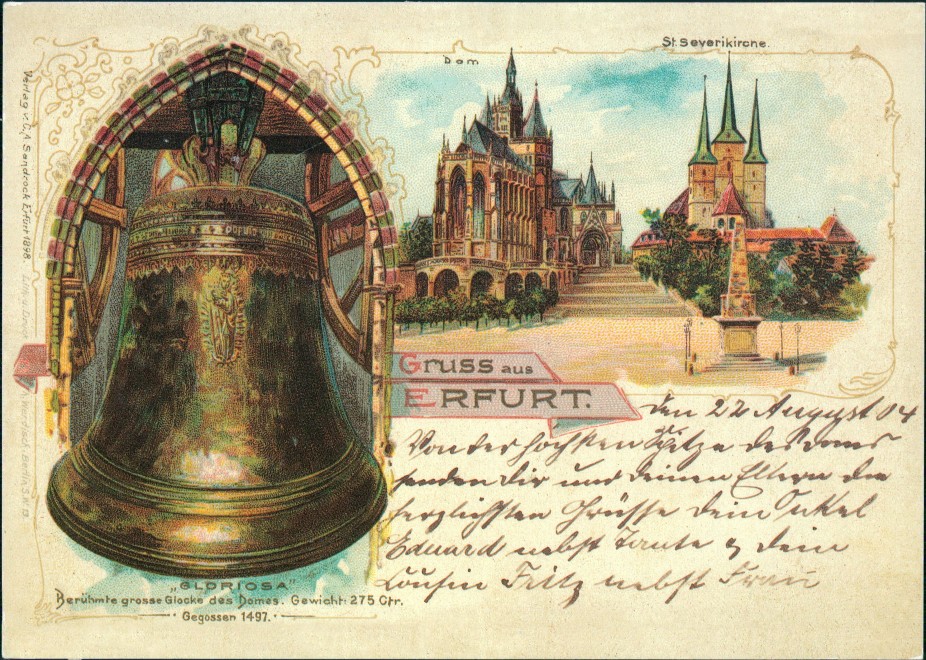 Dom
St. Severikirche.
Verlag v. C.A Sandrock Erfurt 1898.
Gruss aus
ERFURT.
den 22 August 04
Von der höchsten Spitze des Doms
senden dir und deinen Eltern die
herzlichsten Grüsse dein Onkel
Eduard nebst Tante & dein
Cousin Fritz nebst Frau
„GLORIOSA"
Berühmte grosse Glocke des Domes. Gewicht: 275 Ctr.
Gegossen 1497.